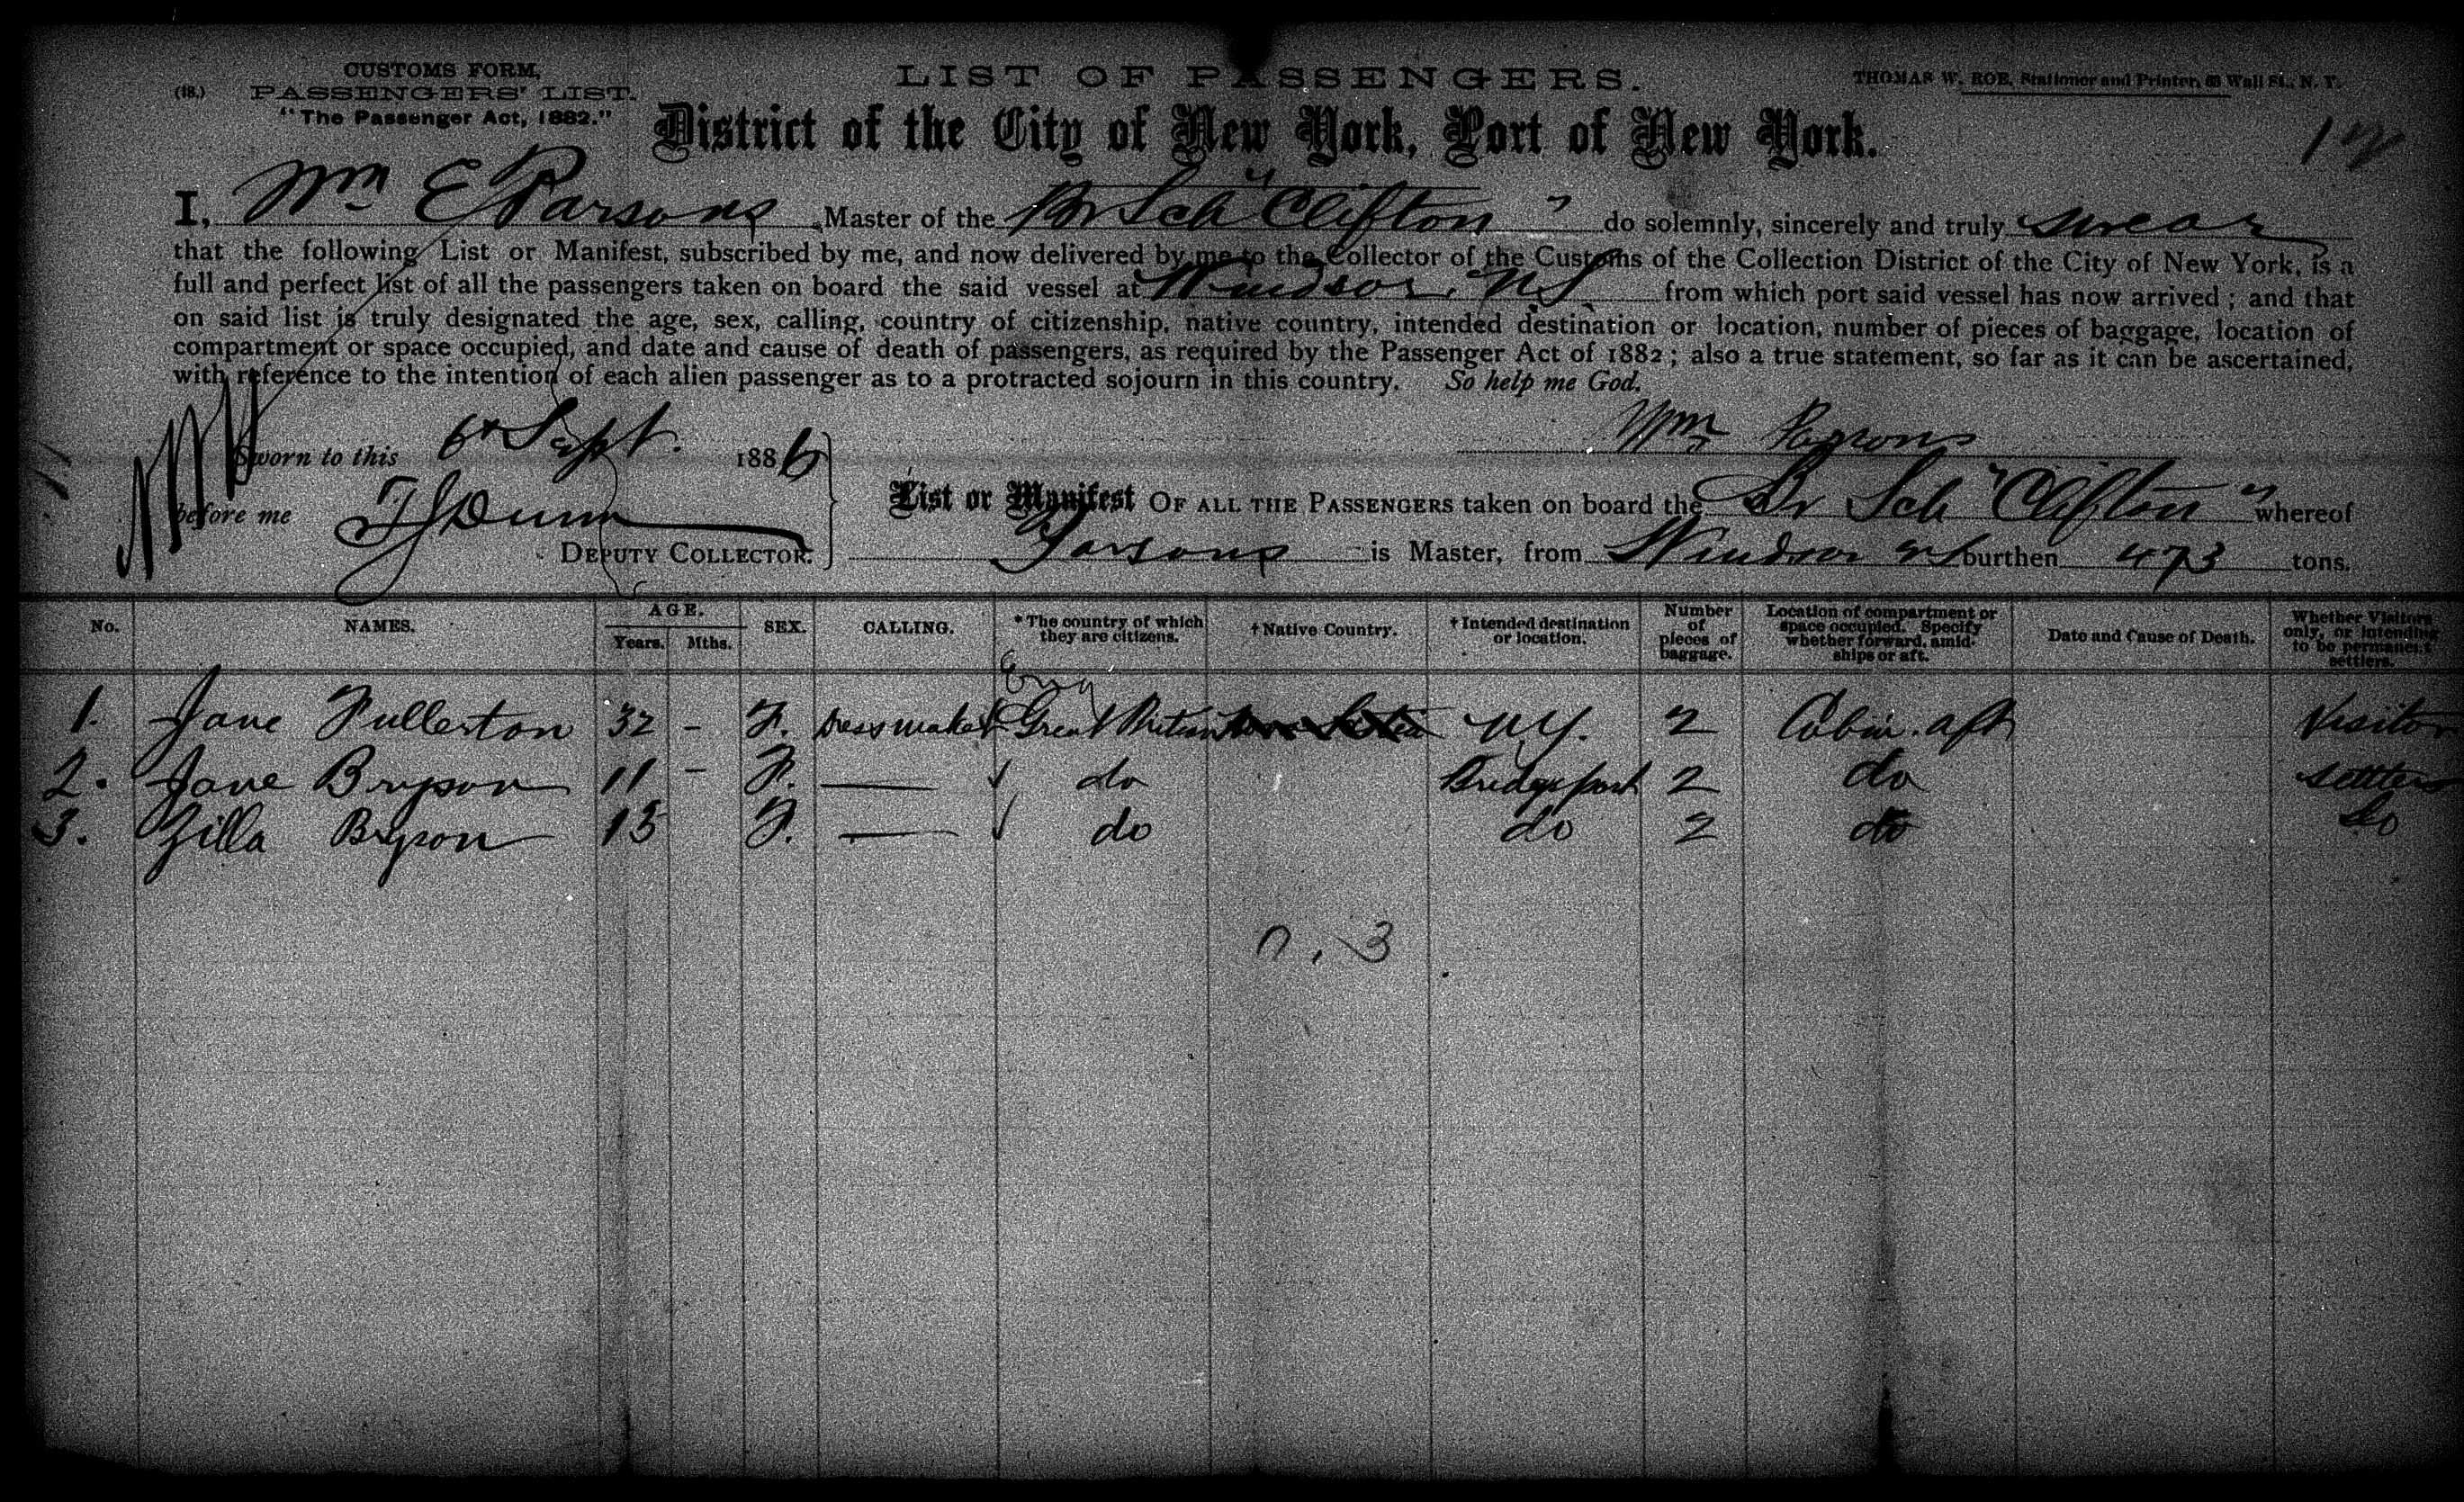 CUSTOMS FORM,
(18.) PASSENGERS' LIST.
"The Passenger Act, 1882."
LIST OF PASSENGERS.
THOMAS W. ROE, Stationer and Printer, Wall St., N. Y.
District of the City of New York, Port of New York.
I, Wm E Parsons Master of the Br Sch "Clifton" do solemnly, sincerely and truly swear
that the following List or Manifest, subscribed by me, and now delivered by me to the Collector of the Customs of the Collection District of the City of New York, is a
full and perfect list of all the passengers taken on board the said vessel at Windsor, NS from which port said vessel has now arrived ; and that
on said list is truly designated the age, sex, calling, country of citizenship, native country, intended destination or location, number of pieces of baggage, location of
compartment or space occupied, and date and cause of death of passengers, as required by the Passenger Act of 1882 ; also a true statement, so far as it can be ascertained,
with reference to the intention of each alien passenger as to a protracted sojourn in this country. So help me God.
Wm Parsons
Sworn to this 6th Sept. 1886
before me TJ Dunn
DEPUTY COLLECTOR.
List or Manifest OF ALL THE PASSENGERS taken on board the Br Sch "Clifton" whereof
Parsons is Master, from Windsor NS burthen 473 tons.
No. NAMES. AGE. Years. Mths. SEX. CALLING. * The country of which they are citizens. † Native Country. † Intended destination or location. Number of pieces of baggage. Location of compartment or space occupied. Specify whether forward, amidships or aft. Date and Cause of Death. Whether Visitors only, or intending to be permanent settlers.
Eng
1. Jane Fullerton 32 - F. Dressmaker Great Britain Nova Scotia N.Y. 2 Cabin. aft Visitor
2. Jane Bryson 11 - F. — ✓ do Bridgeport 2 do settlers
3. Zilla Bryson 13 F. — ✓ do do 2 do do
n. 3